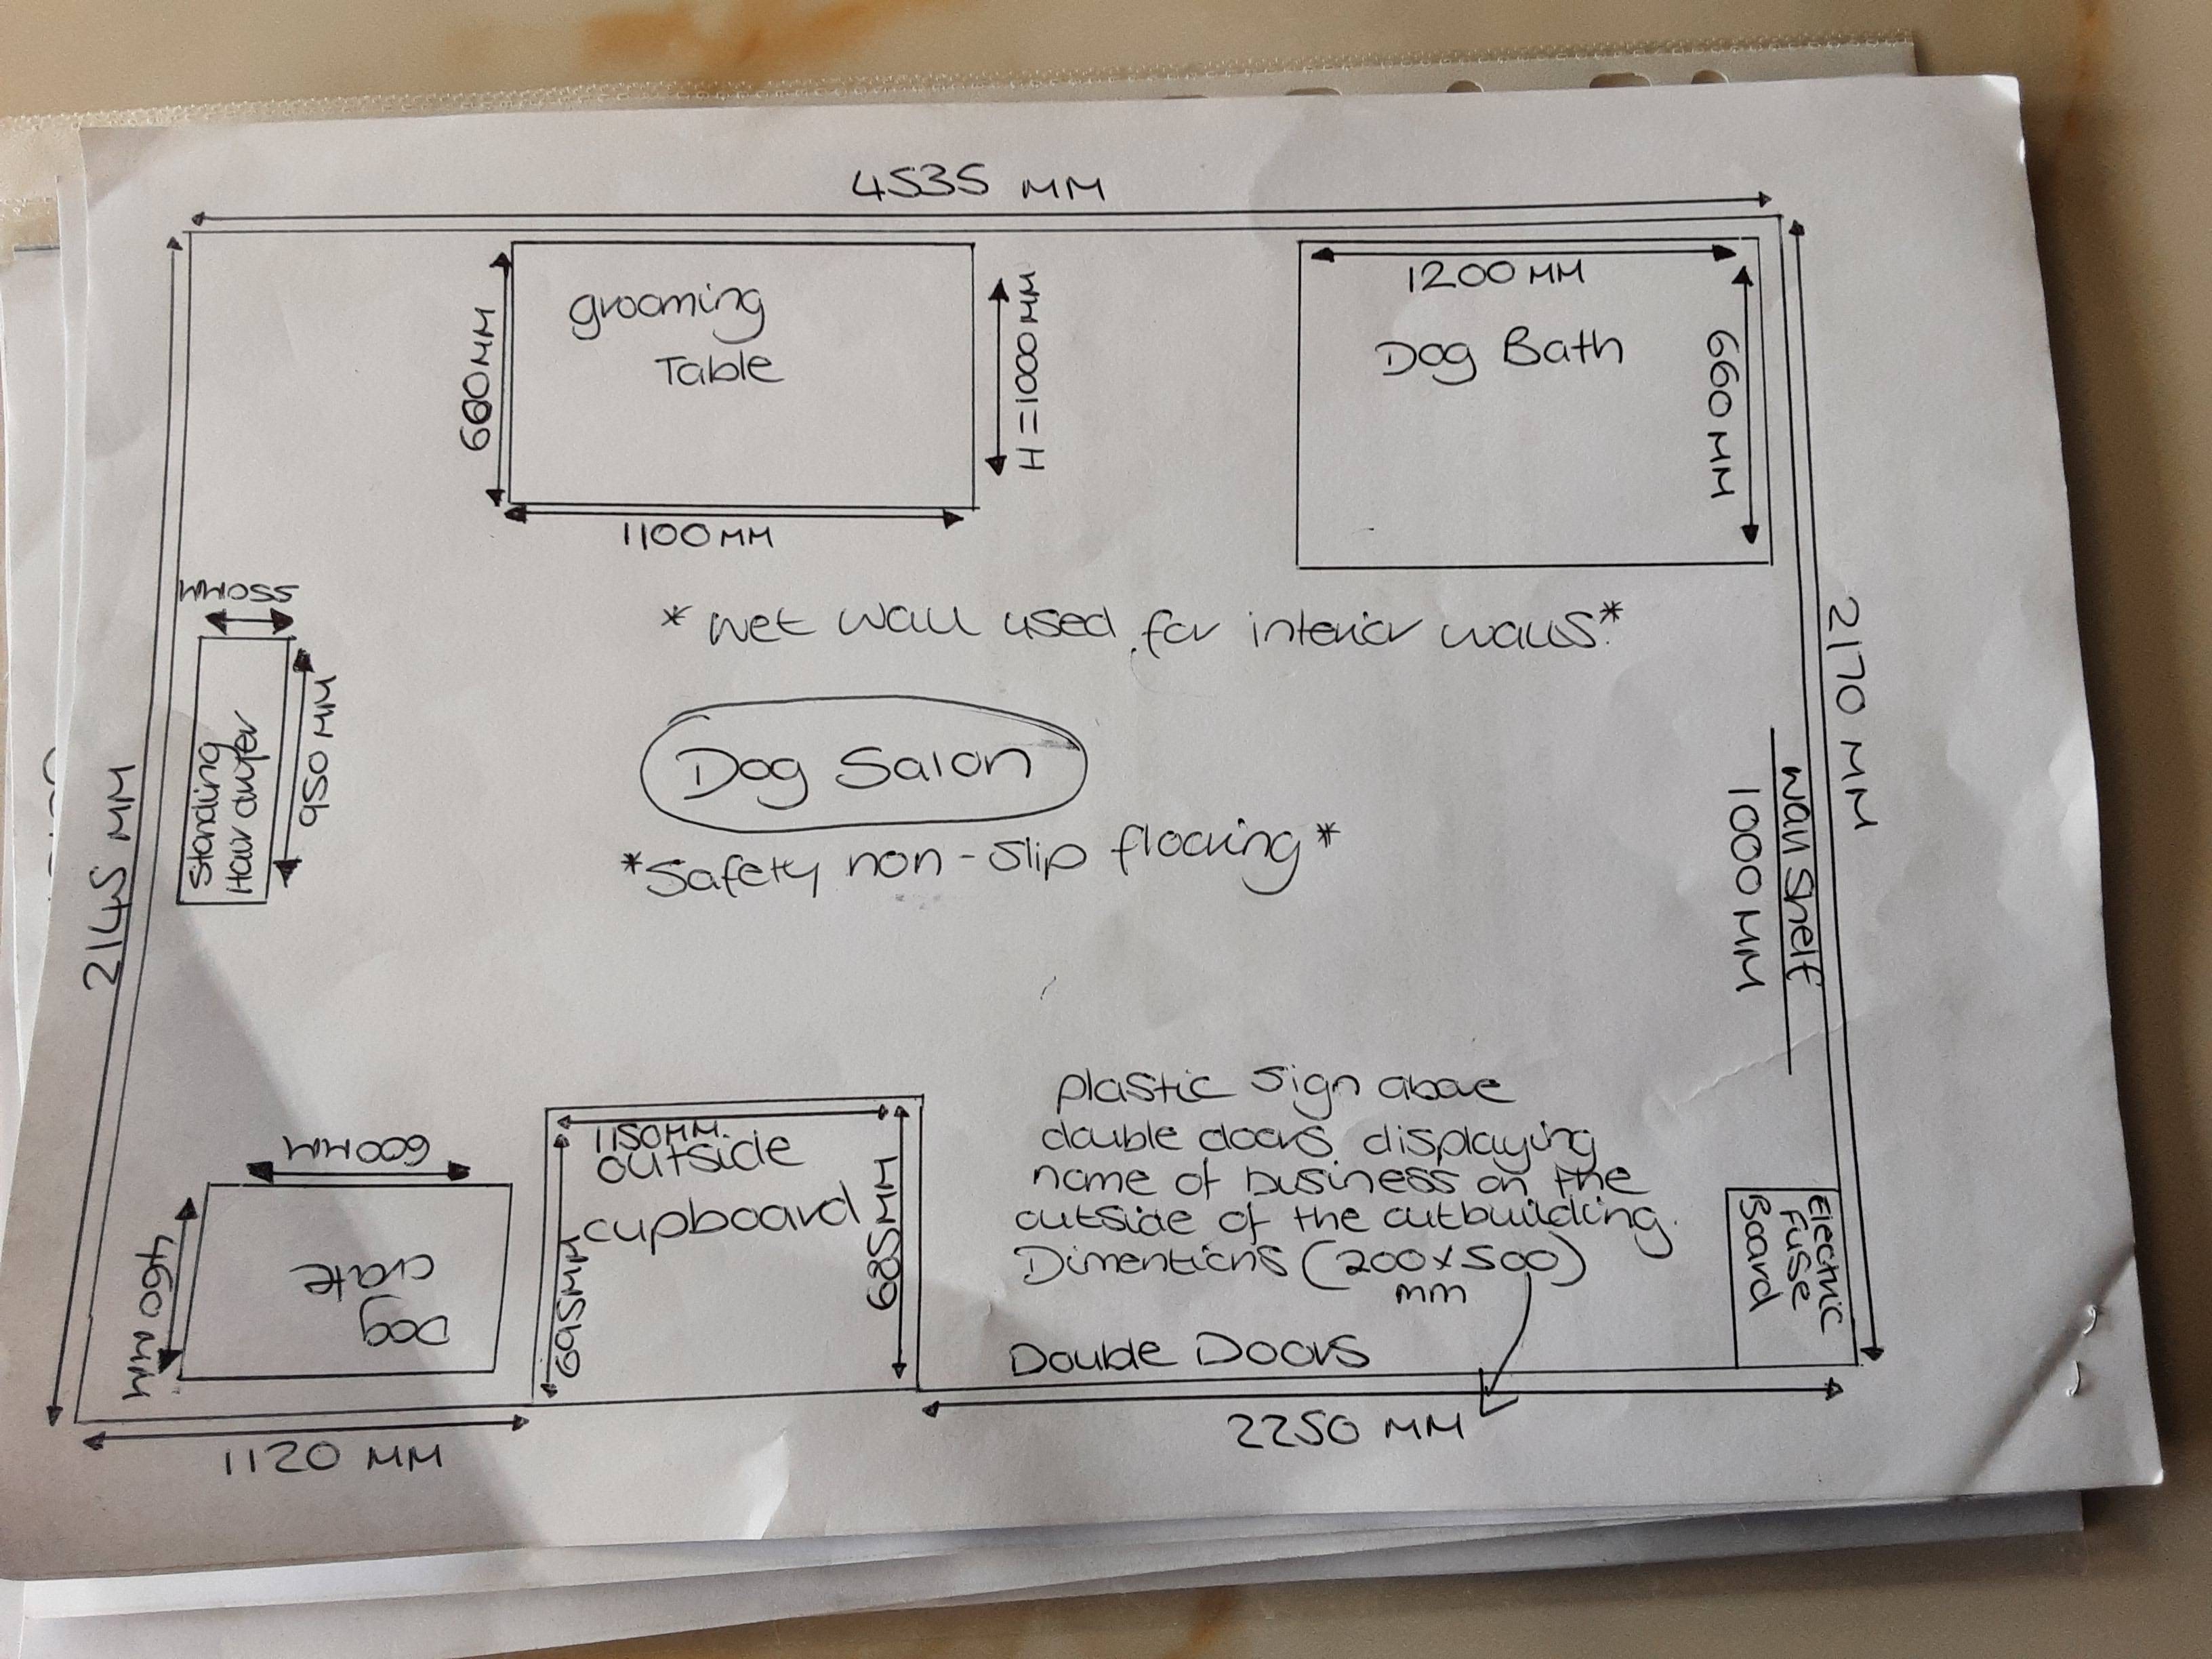 4535 MM
grooming
Table
660MM
H = 1000MM
1100MM
1200MM
Dog Bath
660MM
* wet wall used for interior walls*
550MM
Standing
Hair dryer
950 MM
2145 MM
Dog Salon
*Safety non-slip flooring*
2170 MM
wall Shelf
1000 MM
600MM
460MM
Dog
crate
1150MM
outside
cupboard
695MM
685MM
plastic sign above
double doors displaying
name of business on the
outside of the outbuilding.
Dimentions (200x500)
mm
Double Doors
Electric
Fuse
Board
1120 MM
2250 MM